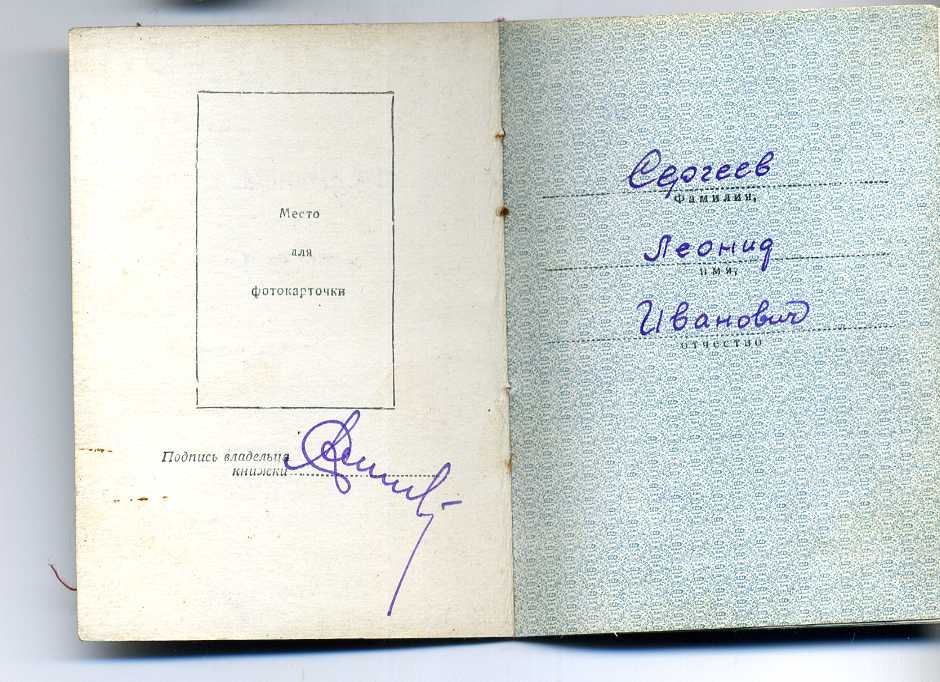 Место
для
фотокарточки
Подпись владельца
книжки
Сергеев
фамилия,
Леонид
имя,
Иванович
отчество